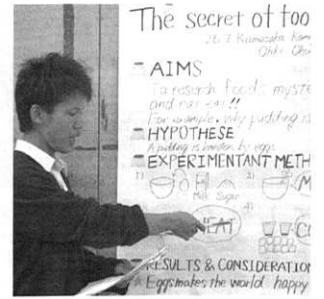 The secret of foo
AIMS
To research food's myste
and eat
For example, why pudding is
HYPOTHESE
A pudding is harden by eggs
EXPERIMENTANT METH
1)
2)
Milk Sugar
4)
HEAT
RESULTS & CONSIDERATION
Eggs makes the world happy